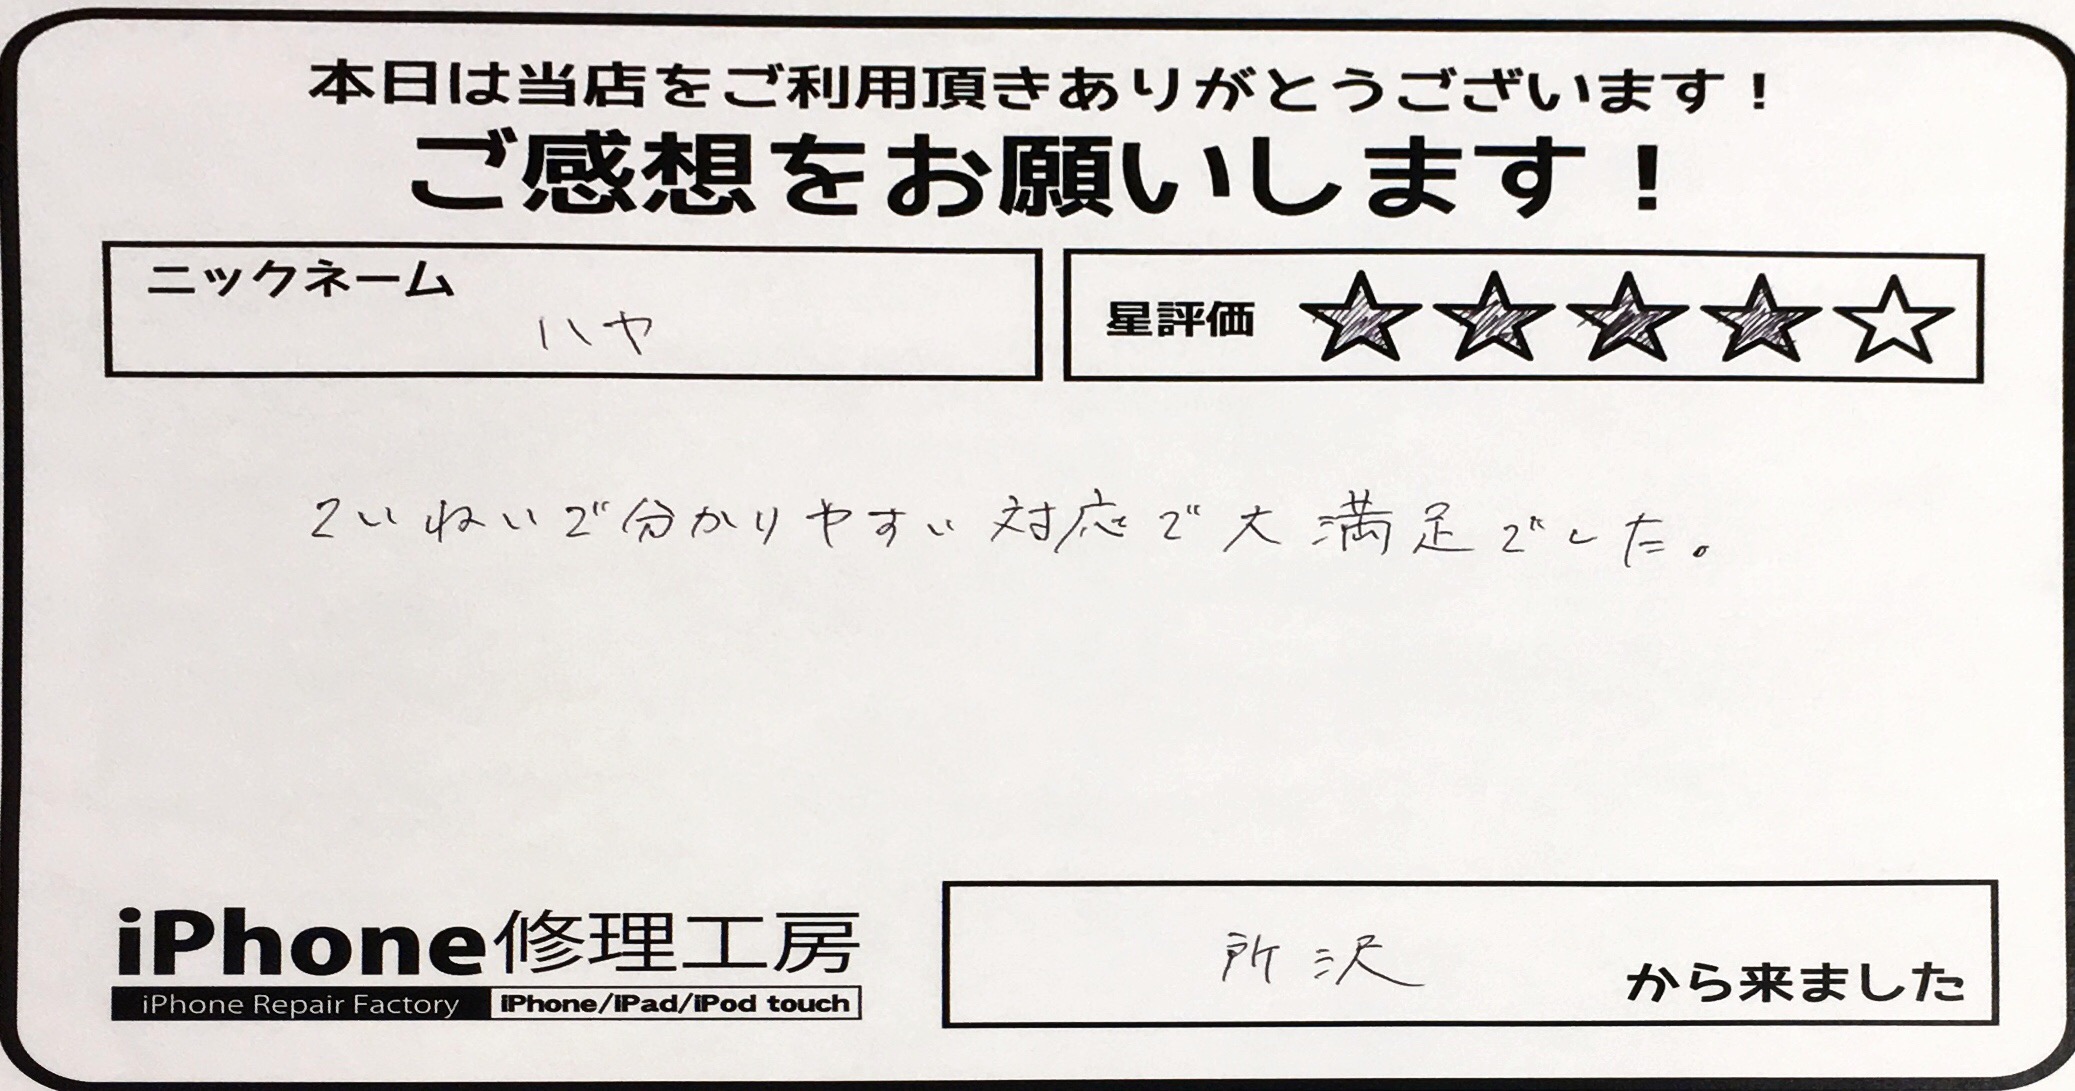 本日は当店をご利用頂きありがとうございます！
ご感想をお願いします！
ニックネーム
ハヤ
星評価 ★★★★☆
ていねいで分かりやすい対応で大満足でした。
iPhone修理工房
iPhone Repair Factory iPhone/iPad/iPod touch
所沢 から来ました